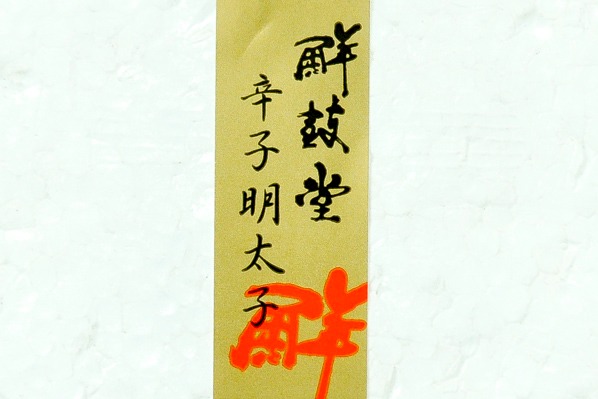 鮮鼓堂
辛子明太子
鮮